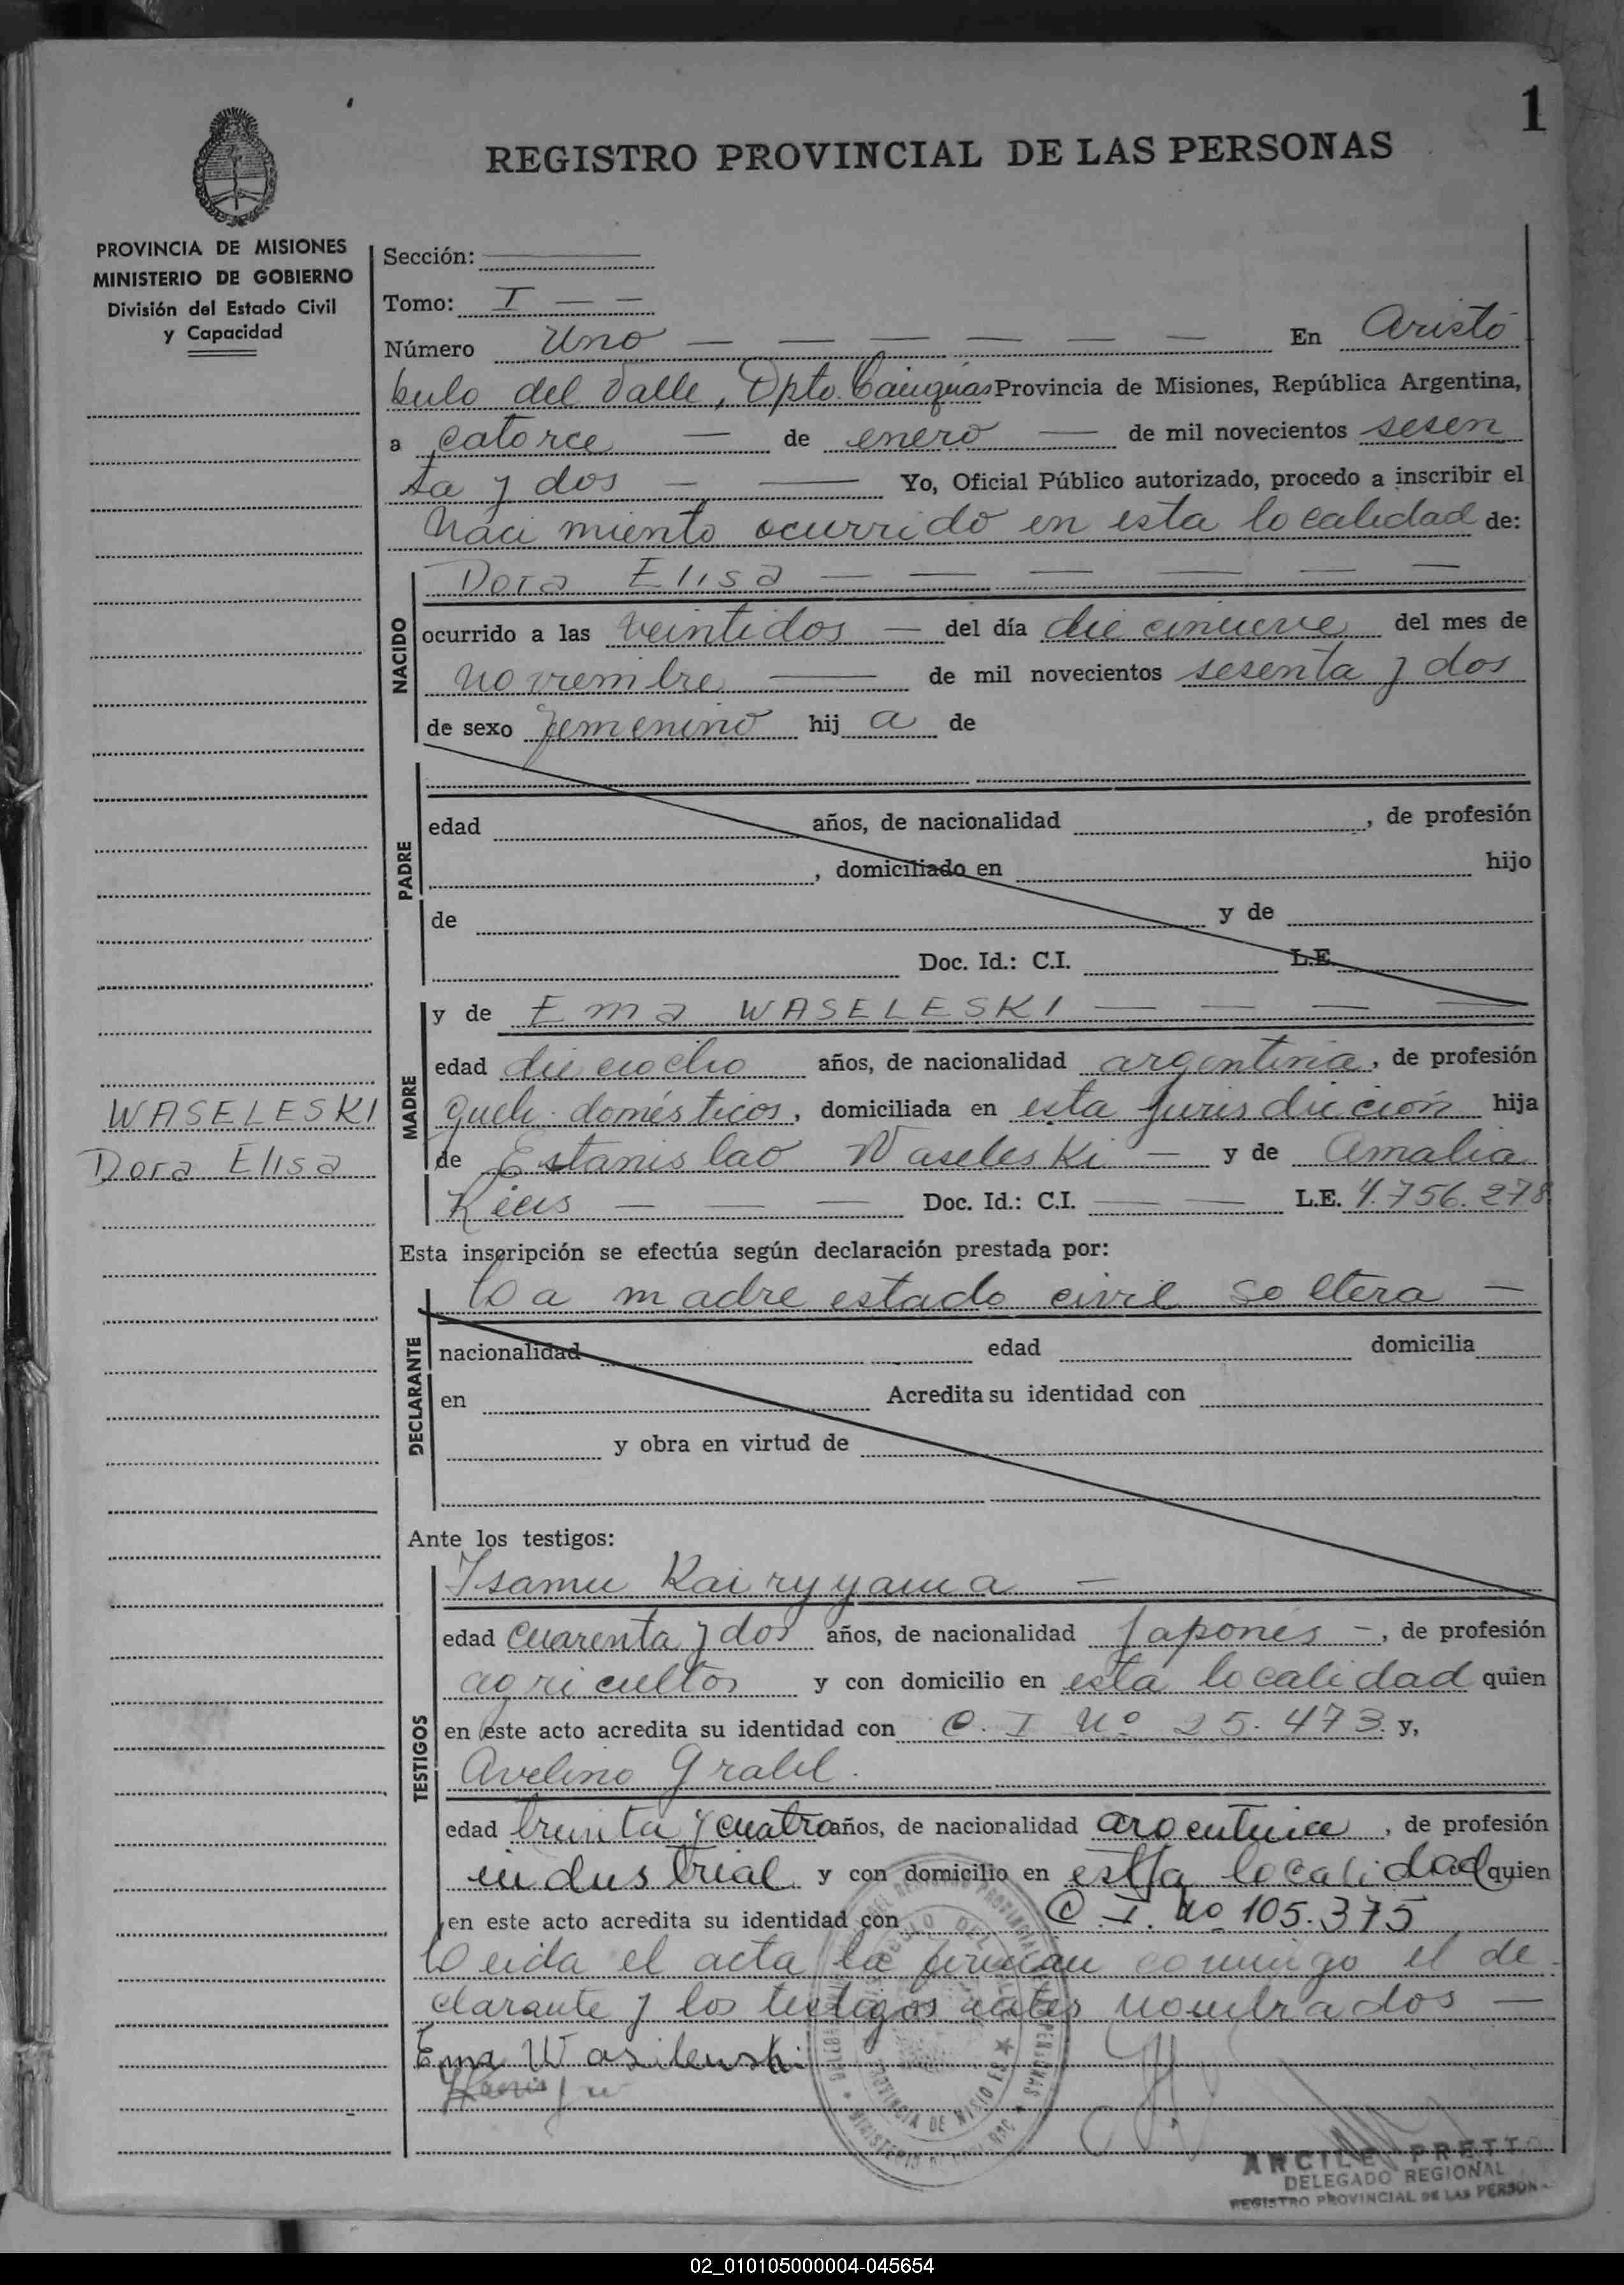 1
REGISTRO PROVINCIAL DE LAS PERSONAS
PROVINCIA DE MISIONES
MINISTERIO DE GOBIERNO
División del Estado Civil
y Capacidad
Sección:
Tomo: I
Número Uno — — — — — — En Aristó
bulo del Valle, Dpto. Cainguas Provincia de Misiones, República Argentina,
a catorce — de enero — de mil novecientos sesen
ta y dos — — Yo, Oficial Público autorizado, procedo a inscribir el
Naci miento ocurrido en esta localidad de:
NACIDO
Dora Elisa — — — — — —
ocurrido a las veintidos — del día diecinueve del mes de
noviembre — de mil novecientos sesenta y dos
de sexo femenino hij a de
PADRE
edad años, de nacionalidad , de profesión
, domiciliado en hijo
de y de
Doc. Id.: C.I. L.E.
MADRE
y de Ema WASELESKI — — — —
edad dieciocho años, de nacionalidad argentina, de profesión
queh. domésticos, domiciliada en esta jurisdicción hija
WASELESKI
de Estanislao Waseleski — y de Amalia
Dora Elisa
— — Doc. Id.: C.I. — — L.E. 4.756.278
Esta inscripción se efectúa según declaración prestada por:
DECLARANTE
La madre estado civil soltera —
nacionalidad edad domicilia
en Acredita su identidad con
y obra en virtud de
Ante los testigos:
TESTIGOS
Isamu Kairyyama —
edad cuarenta y dos años, de nacionalidad Japonés —, de profesión
agricultor y con domicilio en esta localidad quien
en este acto acredita su identidad con C. I Nº 25.473. y,
Avelino
edad treinta y cuatro años, de nacionalidad argentina, de profesión
industrial y con domicilio en esta localidad quien
en este acto acredita su identidad con C. I. Nº 105.375
Leida el acta la firman conmigo el de
clarante y los testigos antes nombrados —
Ema Wasilewski
ARCILE PRETTO
DELEGADO REGIONAL
REGISTRO PROVINCIAL DE LAS PERSON
02_010105000004-045654